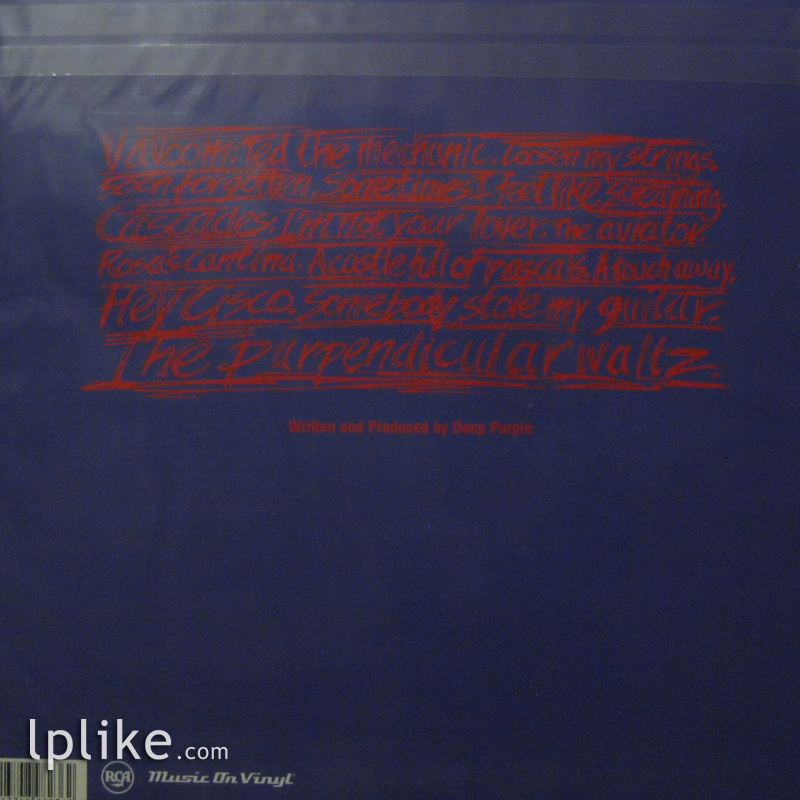 Vavoom: Ted the mechanic. Loosen my strings.
Soon forgotten. Sometimes I feel like screaming.
Cascades: I'm not your lover. The aviator.
Rosa's cantina. A castle full of rascals. A touch away.
Hey Cisco. Somebody stole my guitar.
The purpendicular waltz
Written and Produced by Deep Purple
lplike.com
RCA Music On Vinyl